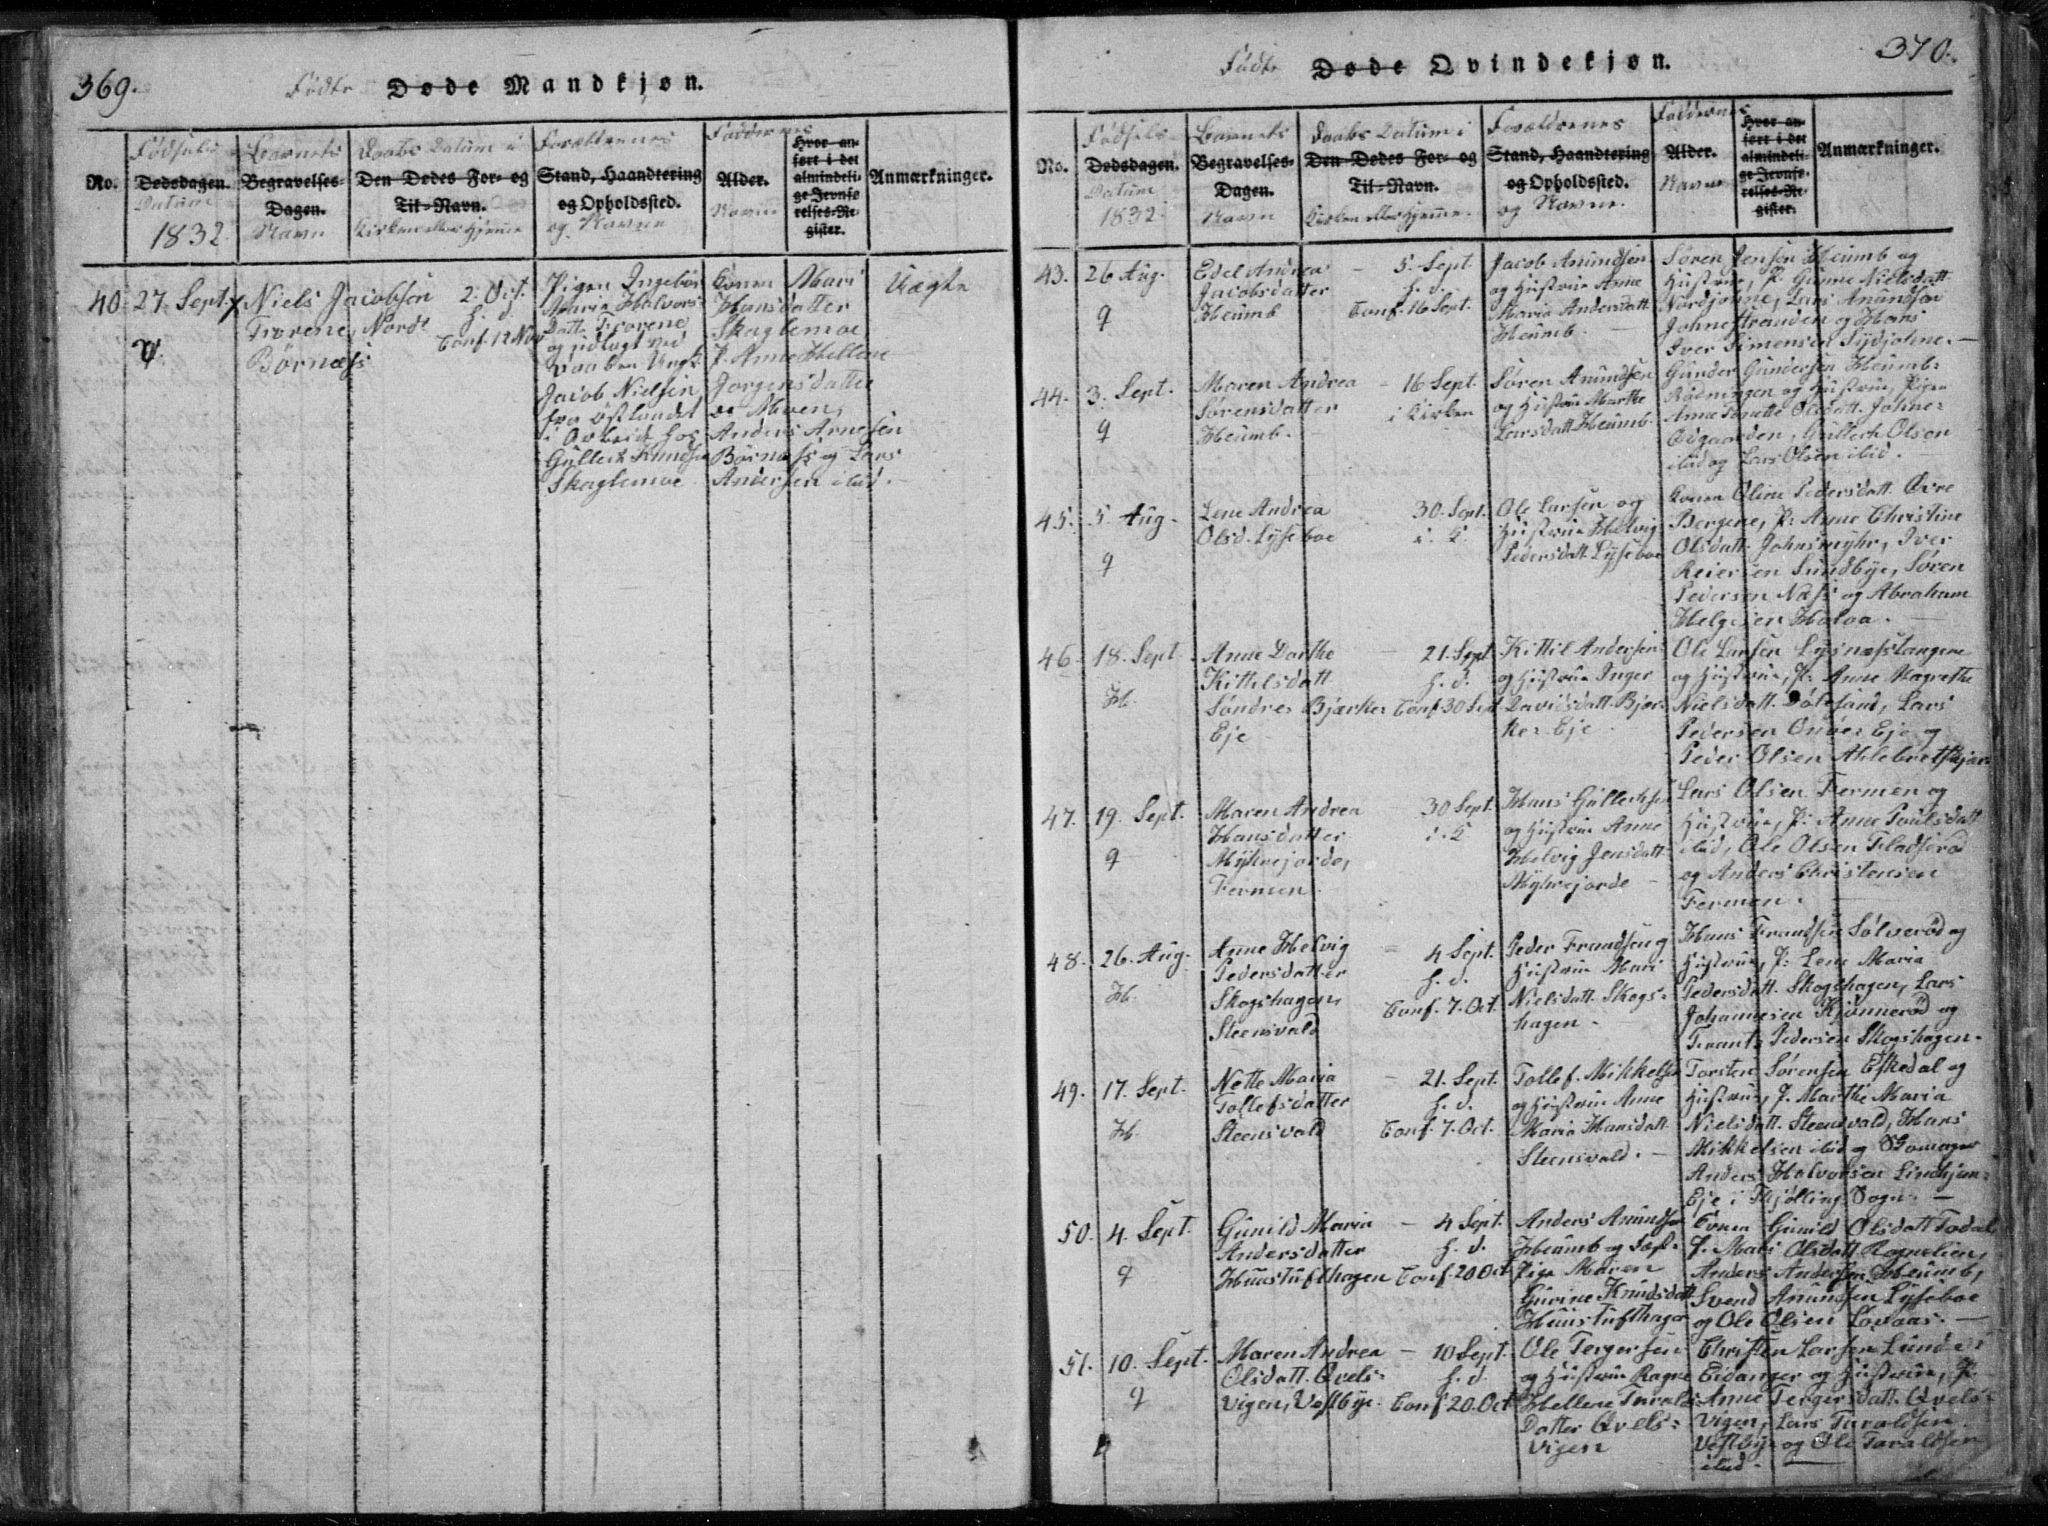 369.
Fødte Døde Mandkjøn.
No.
Fødsels
Dødsdagen.
Datum
1832.
Barnets
Begravelses-
Dagen.
Navn
Daabs Datum i
Den Dødes For- og
Til-Navn.
Kirken eller Hjemme
Forældrenes
Stand, Haandtering
og Opholdssted.
og Navne
Faddernes
Alder.
Navne
Hvor an-
ført i det
almindeli-
ge Jevnfø-
relses-Re-
gister.
Anmærkninger.
40. 27. Sept.
Niels Jacobsen
Trorene, Nordr
Börnæss
2. Oct.
h. d.
Conf. 12 Nov
Pigen Ingebor
Maria Halvors
Datt. Trorene
og udlagt ved
Daaben Ungk.
Jacob Nielsen
fra Østlandet
i Arbeide hos
Gullech Knudsen
Skaglemoe
Konen Mari
Hansdatter
Skaglemoe
P. Anne Hellene
Jorgensdatter
Anders Arnesen
Börnæss og Lars
Andersen ibid.
Uægte
370.
Fødte Døde Qvindekjøn.
No.
Fødsels
Dødsdagen.
Datum
1832.
Barnets
Begravelses-
Dagen.
Navn
Daabs Datum i
Den Dødes For- og
Til-Navn.
Kirken eller Hjemme.
Forældrenes
Stand, Haandtering
og Opholdssted.
og Navne.
Faddernes
Alder.
Navne
Hvor an-
ført i det
almindeli-
ge Jevnfø-
relses-Re-
gister.
Anmærkninger.
43. 26 Aug.
Edel Andrea
Jacobsdatter
Heumb
5. Sept.
h. d.
Conf. 16 Sept.
Jacob Amundsen
og Hustrue Anne
Maria Andersdatt.
Heumb.
Søren Jensen Heumb og
Hustrue, P. Gunne Nielsdatt.
Nordjohne, Lars Amundsen
Johnestranden og Hans
Iver Simensen Sydjohne.
44. 3. Sept.
Maren Andrea
Sørensdatter
Heumb.
16 Sept.
i Kirken
Søren Amundsen
og Hustrue Marthe
Larsdatt. Heumb.
Gunder Gundersen Heumb-
Rødningen og Hustrue, Pigen
Anne Olsdatt. Johne-
Ødgaarden, Gullech Olsen
ibid og Lars Olsen ibid.
45. 5 Aug.
Lene Andrea
Olsd. Lyseboe
30. Sept.
i. K.
Ole Larsen og
Hustrue Helvig
Pedersdatt. Lyseboe
Konen Oline Pedersdatt. Øvre
Bergene, P. Anne Christine
Olsdatt. Johnsmyhr, Iver
Reiersen Sundbye, Søren
Pedersen Næss og Abraham
Helgesen Holoa.
46. 18. Sept.
Anne Dorthe
Kittelsdatt.
Søndre Bjerke
Eje
21. Sept
h. d.
Conf. 30 Sept
Kittil Andersen
og Hustrue Inger
Davidsdatt. Bjer-
ke Eje.
Ole Larsen Lysnæsstangene
og Hustrue, P. Anne Magrethe
Nielsdatt. Dolesund, Lars
Pedersen Eje og
Peder Olsen
47. 19. Sept.
Maren Andrea
Hansdatter
Myhrejorde,
Fermen.
30 Sept.
i. K
Hans Gullechsen
og Hustrue Anne
Helvig Jensdatt.
Myhrejorde
Lars Olsen Fermen og
Hustrue, P. Anne Poulsdatt
ibid, Ole Olsen Fladserød
og Anders Christensen
Fermen.
48. 26. Aug.
Anne Helvig
Pedersdatter
Skogshagen,
Steensvald
4 Sept.
h. d.
Conf. 7. Oct.
Peder Frandsen og
Hustrue Mari
Nielsdatt. Skogs-
hagen.
Hans Frandsen Sølverød og
Hustrue, P. Lene Maria
Pedersdatt. Skogshagen, Lars
Johannesen Kjønnerød og
Frants Pedersen Skogshagen.
49. 17. Sept.
Nette Maria
Tollefsdatter
Steensvald
21. Sept.
h. d.
Conf. 7. Oct.
Tollef Mikkelsen
og Hustrue Anne
Maria Hansdatt.
Steensvald.
Torsten Sørensen Eskedal og
Hustrue, P. Marthe Maria
Nielsdatt. Steensvald, Hans
Mikkelsen ibid og Skomager
Anders Halvorsen Lindhjem-
Eje i Thjølling Sogn.
50. 4. Sept.
Gunild Maria
Andersdatter
Huustufthagen
4 Sept.
h. d.
Conf. 20 Oct
Anders Amundsen
Heumb og
Pige Maren
Gurine Knudsdatt
Huustufthagen
Konen Gunild Olsdatt Todal
P. Mari Olsdatt. Rognelien,
Anders Andersen Heumb,
Svend Amundsen Lyseboe
og Ole Olsen Lovaas.
51. 10. Sept.
Maren Andrea
Olsdatt. Qvels-
vigen, Vestbye.
10 Sept.
h. d.
Conf. 20. Oct
Ole Tergersen
og Hustrue Ragne
Hellene Tarald
Datter Qvels-
vigen
Christen Larsen Lunde
Eidanger og Hustrue, P.
Anne Tergersdatt. Qvels-
vigen, Lars Taraldsen
Vestbye og Ole Taraldsen
ibid.